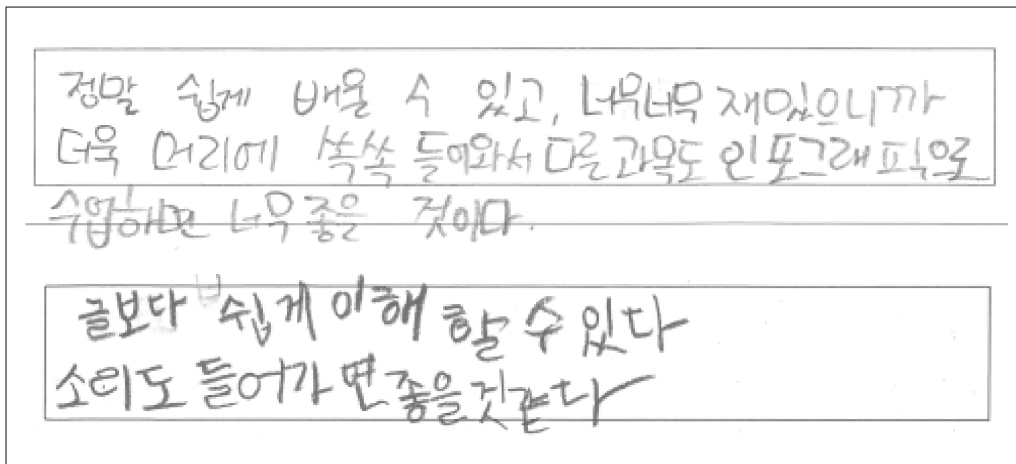 정말 쉽게 배울 수 있고, 너무너무 재밌으니까
더욱 머리에 쏙쏙 들어와서 다른 과목도 인포그래픽으로
수업하면 너무 좋을 것이다.
글보다 쉽게 이해 할 수 있다
소리도 들어가면 좋을것같다